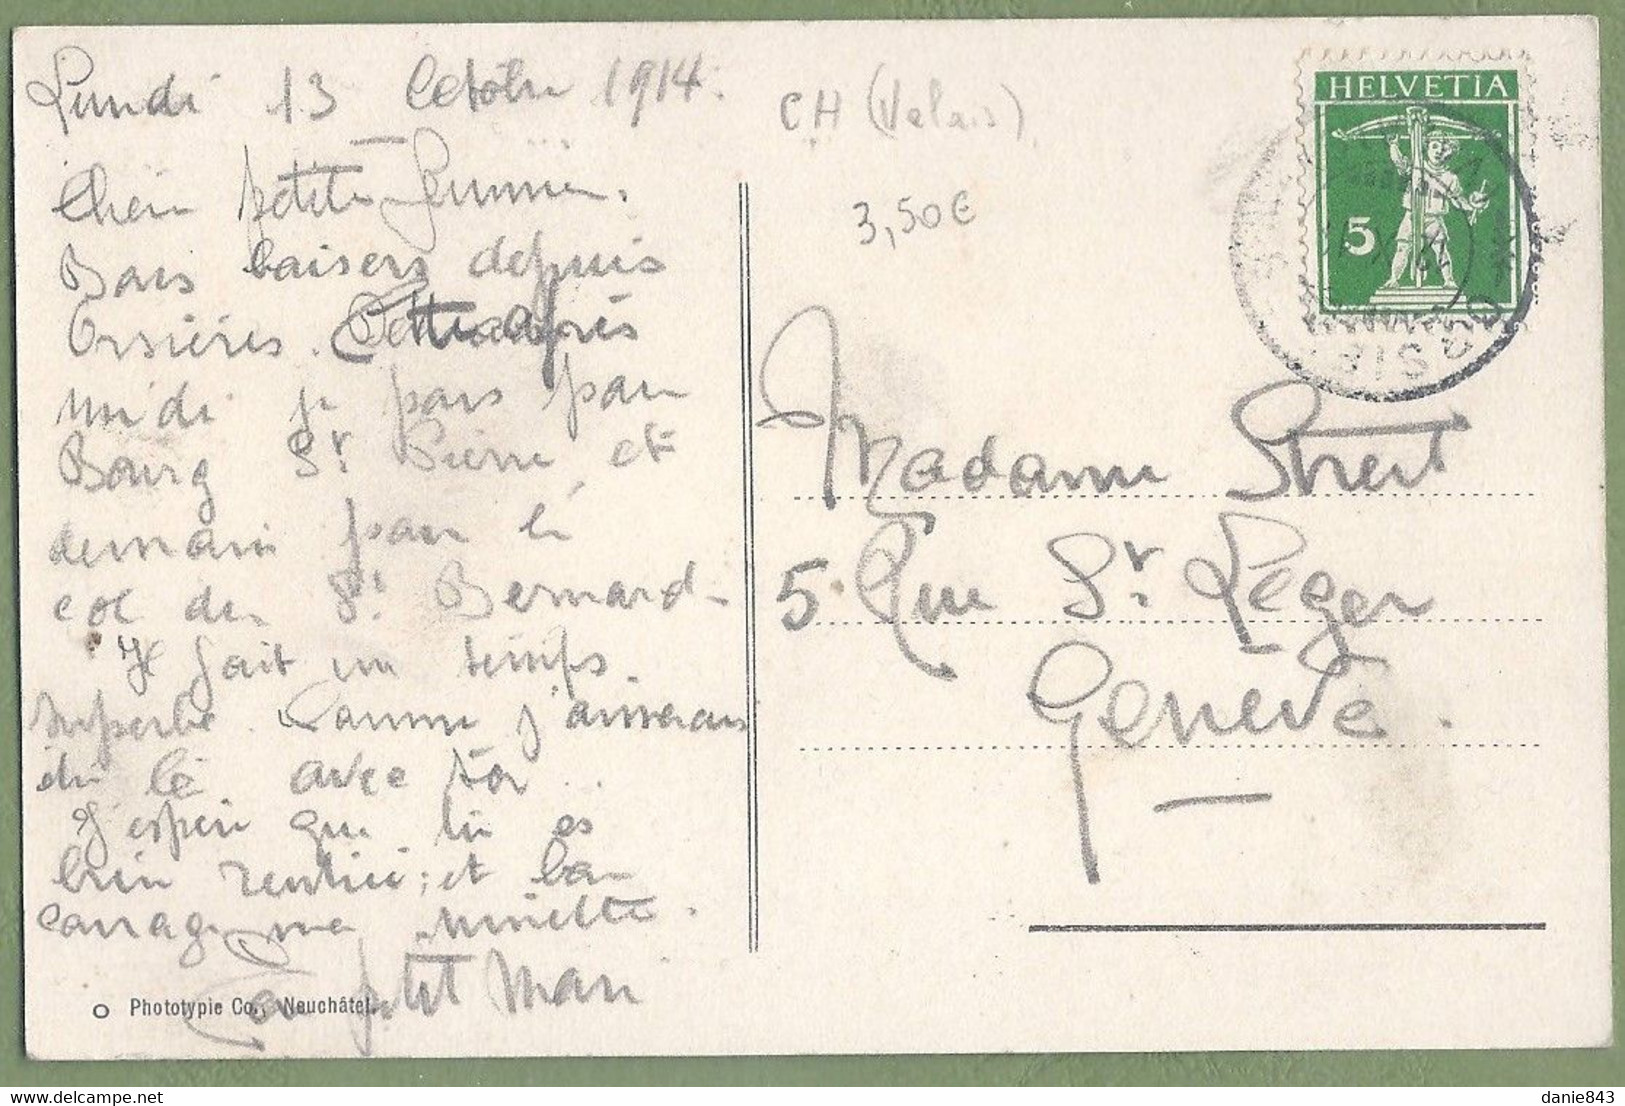 Lundi 13 Octobre 1914.
Chère petite femme.
Bons baisers depuis
Orsières. Cette après
midi je pars par
Bourg St. Pierre et
demain par le
col du St. Bernard.
Il fait un temps
superbe. Comme j'aimerais
être là avec toi...
J'espère que tu es
bien rentrée; et bon
courage ma minette.
Ton petit Mari
Phototypie Co., Neuchâtel.
CH (Valais)
3,50€
HELVETIA
5
Madame Streit
5 Rue St. Léger
Genève.
danie843